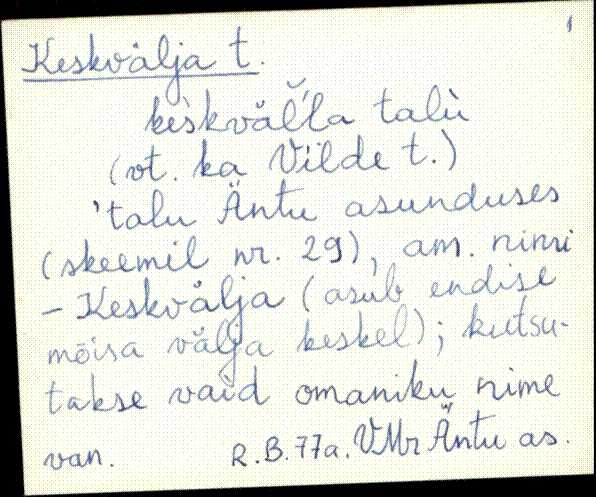 1
Keskvälja t.
kèskväĺ̆la talù
(vt. ka Vilde t.)
'talu Äntu asunduses
(skeemil nr. 29), am. nimi
- Keskvälja (asub endise
mõisa välja keskel); kutsu-
takse vaid omaniku nime
van. R.B. 77a. VMr Äntu as.